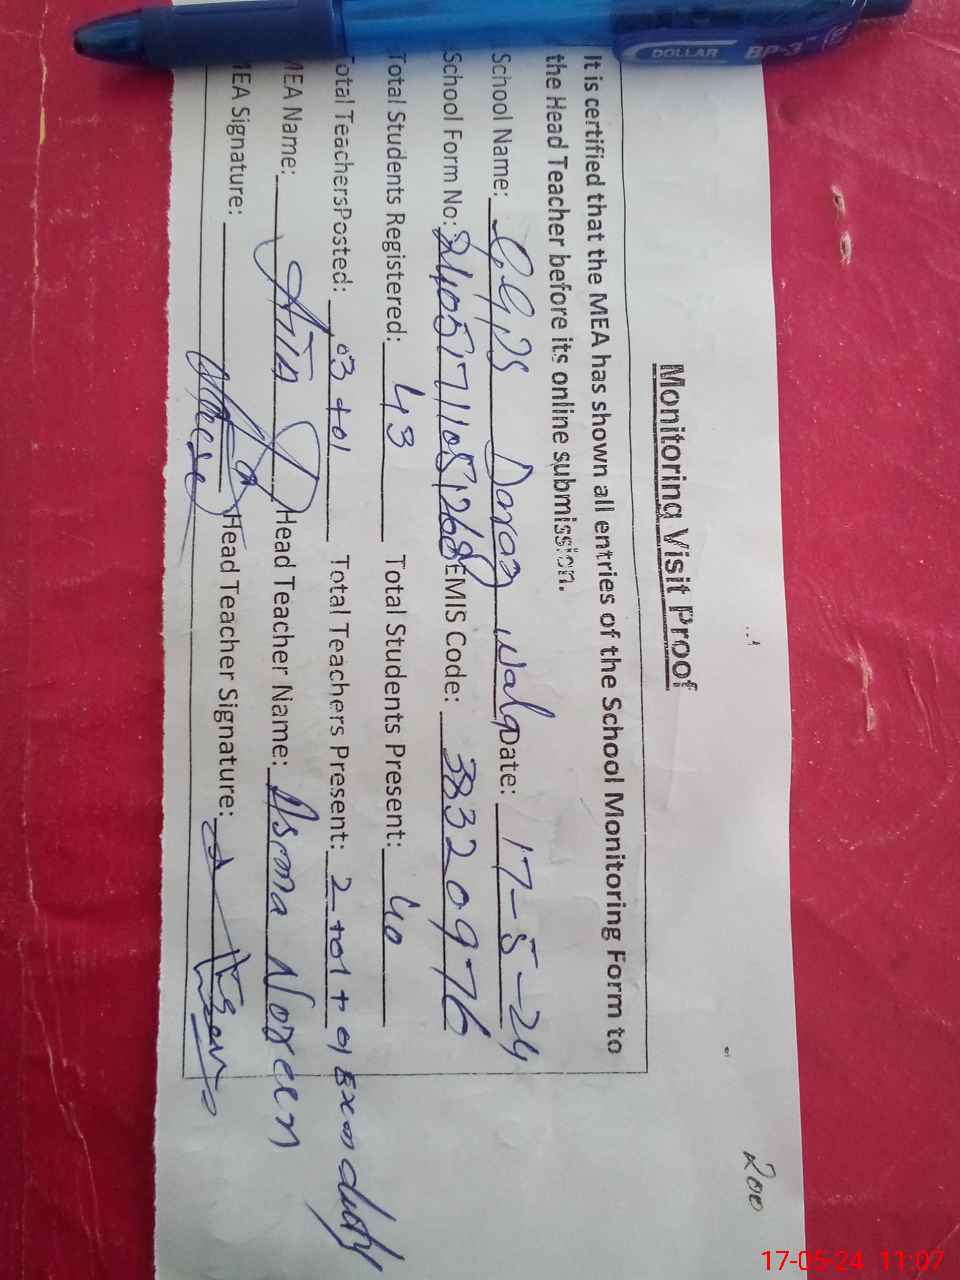 DOLLAR BP-3
200
Monitoring Visit Proof
It is certified that the MEA has shown all entries of the School Monitoring Form to
the Head Teacher before its online submission.
School Name: GGPS Wala Date: 17-5-24
School Form No: EMIS Code: 38320976
Total Students Registered: 43 Total Students Present: 40
Total TeachersPosted: 03 + 01 Total Teachers Present: 2 + 01 + 01 Exm duty
MEA Name: Head Teacher Name: Asma Noreen
MEA Signature: Head Teacher Signature:
17-05-24 11:07